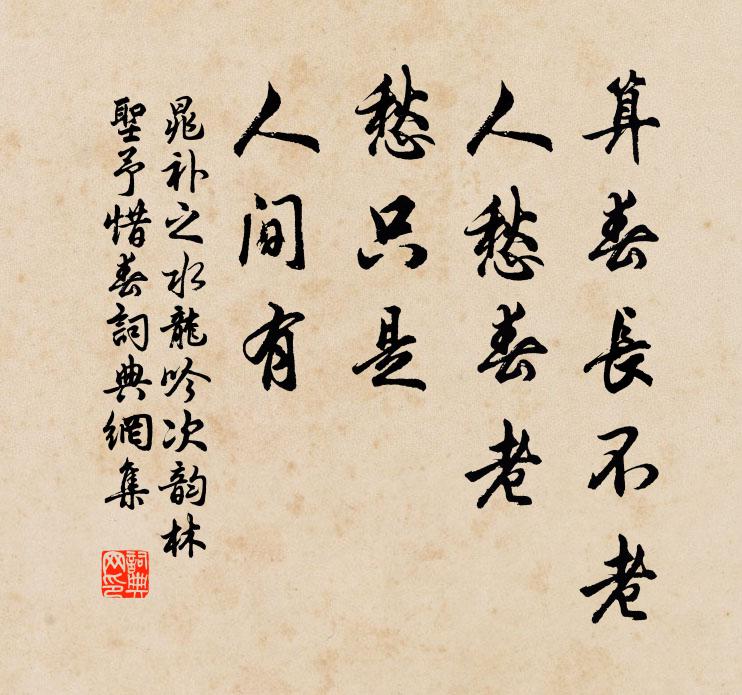 算春長不老
人愁春老
愁只是
人间有
晁补之水龍吟次韵林
聖予惜春詞典網集
詞典
网印